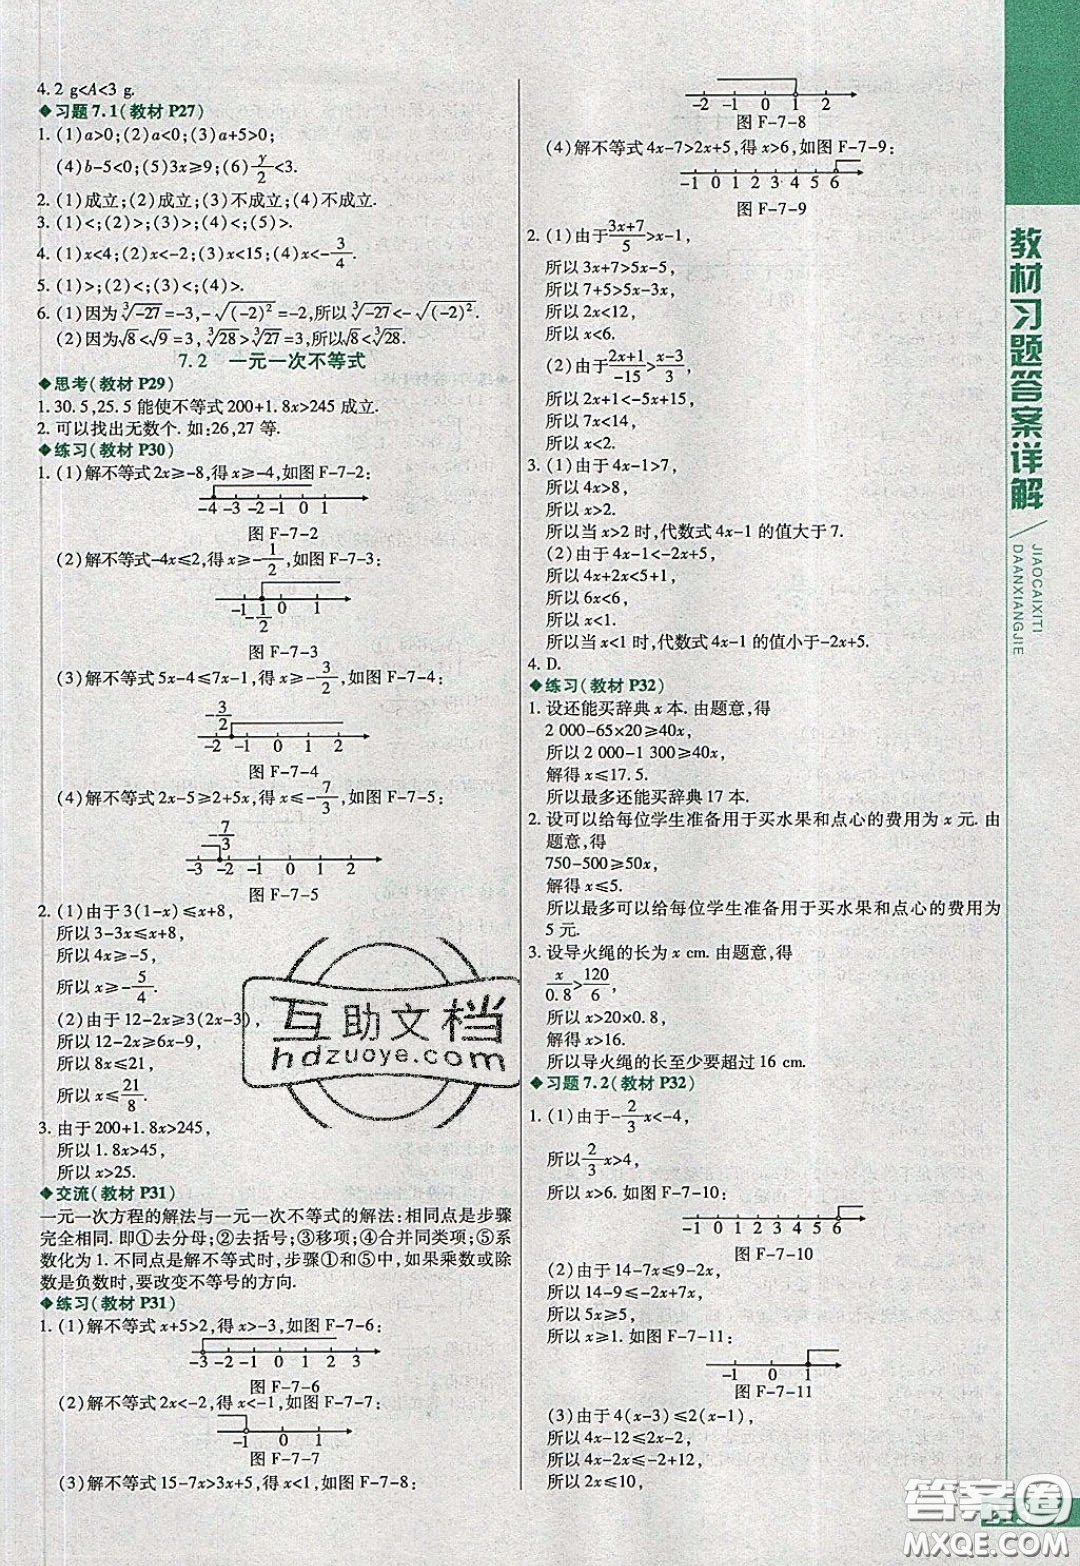 4. 2 g<A<3 g.
◆习题7.1(教材P27)
1. (1)a>0;(2)a<0;(3)a+5>0;
(4)b-5<0;(5)3x≥9;(6)y/2<3.
2. (1)成立;(2)成立;(3)不成立;(4)不成立.
3. (1)<;(2)>;(3)>;(4)<;(5)>.
4. (1)x<4;(2)x>-2;(3)x<15;(4)x<-3/4.
5. (1)>;(2)<;(3)<;(4)<.
6. (1)因为∛-27=-3,-√(-2)²=-2,所以∛-27<-√(-2)².
(2)因为√8<√9=3,∛28>∛27=3,所以√8<∛28.
7.2 一元一次不等式
◆思考(教材P29)
1. 30.5,25.5 能使不等式200+1.8x>245 成立.
2. 可以找出无数个. 如:26,27 等.
◆练习(教材P30)
1. (1)解不等式2x≥-8,得x≥-4,如图F-7-2:
-4 -3 -2 -1 0 1
图F-7-2
(2)解不等式-4x≤2,得x≥-1/2,如图F-7-3:
-1 -1/2 0 1
图F-7-3
(3)解不等式5x-4≤7x-1,得x≥-3/2,如图F-7-4:
-3/2
-2 -1 0 1 2
图F-7-4
(4)解不等式2x-5≥2+5x,得x≤-7/3,如图F-7-5:
-7/3
-3 -2 -1 0 1 2
图F-7-5
2. (1)由于3(1-x)≤x+8,
所以3-3x≤x+8,
所以4x≥-5,
所以x≥-5/4.
(2)由于12-2x≥3(2x-3),
所以12-2x≥6x-9,
所以8x≤21,
所以x≤21/8.
3. 由于200+1.8x>245,
所以1.8x>45,
所以x>25.
◆交流(教材P31)
一元一次方程的解法与一元一次不等式的解法:相同点是步骤
完全相同. 即①去分母;②去括号;③移项;④合并同类项;⑤系
数化为1. 不同点是解不等式时,步骤①和⑤中,如果乘数或除
数是负数时,要改变不等号的方向.
◆练习(教材P31)
1. (1)解不等式x+5>2,得x>-3,如图F-7-6:
-3 -2 -1 0 1 2 3
图F-7-6
(2)解不等式2x<-2,得x<-1,如图F-7-7:
-1 0 1
图F-7-7
(3)解不等式15-7x>3x+5,得x<1,如图F-7-8:
-2 -1 0 1 2
图F-7-8
(4)解不等式4x-7>2x+5,得x>6,如图F-7-9:
-1 0 1 2 3 4 5 6
图F-7-9
2. (1)由于3x+7/5>x-1,
所以3x+7>5x-5,
所以7+5>5x-3x,
所以2x<12,
所以x<6.
(2)由于2x+1/-15>x-3/3,
所以2x+1<-5x+15,
所以7x<14,
所以x<2.
3. (1)由于4x-1>7,
所以4x>8,
所以x>2.
所以当x>2时,代数式4x-1的值大于7.
(2)由于4x-1<-2x+5,
所以6x<6,
所以x<1.
所以当x<1时,代数式4x-1的值小于-2x+5.
4. D.
◆练习(教材P32)
1. 设还能买辞典x本. 由题意,得
2 000-65×20≥40x,
所以2 000-1 300≥40x,
解得x≤17.5.
所以最多还能买辞典17本.
2. 设可以给每位学生准备用于买水果和点心的费用为x元. 由
题意,得
750-500≥50x,
解得x≤5.
所以最多可以给每位学生准备用于买水果和点心的费用为
5元.
3. 设导火绳的长为x cm. 由题意,得
x/0.8>120/6,
所以x>20×0.8,
解得x>16.
所以导火绳的长至少要超过16 cm.
◆习题7.2(教材P32)
1. (1)由于-2/3x<-4,
所以2/3x>4,
所以x>6. 如图F-7-10:
-1 0 1 2 3 4 5 6
图F-7-10
(2)由于14-7x≤9-2x,
所以14-9≤-2x+7x,
所以5x≥5,
所以x≥1. 如图F-7-11:
-1 0 1
图F-7-11
(3)由于4(x-3)≤2(x-1),
所以4x-12≤2x-2,
所以4x-2x≤-2+12,
所以2x≤10,
教材习题答案详解
JIAOCAIXITI
DAANXIANGJIE
互助文档
hdzuoye.com
答案圈
MXQE.COM